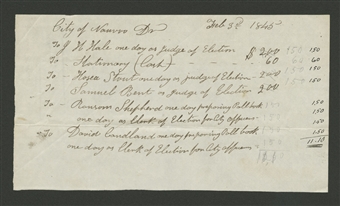 City of Nauvoo Dr Feb 3d 1845
To J H Hale one day as Judge of Election $2.00 1.50
To Hatimony (Cash) 60 60
To Hosea Stout one day as judge of Election 2.00 1.50
To Samuel Bent as Judge of Election 2.00 1.50
To Ransom Shepherd one day preparing Poll book 1.50
" one day as Clerk of Election for City officers 1.50
To David Candland one day preparing Poll book 1.50
one day as Clerk of Election for City officers 11.10